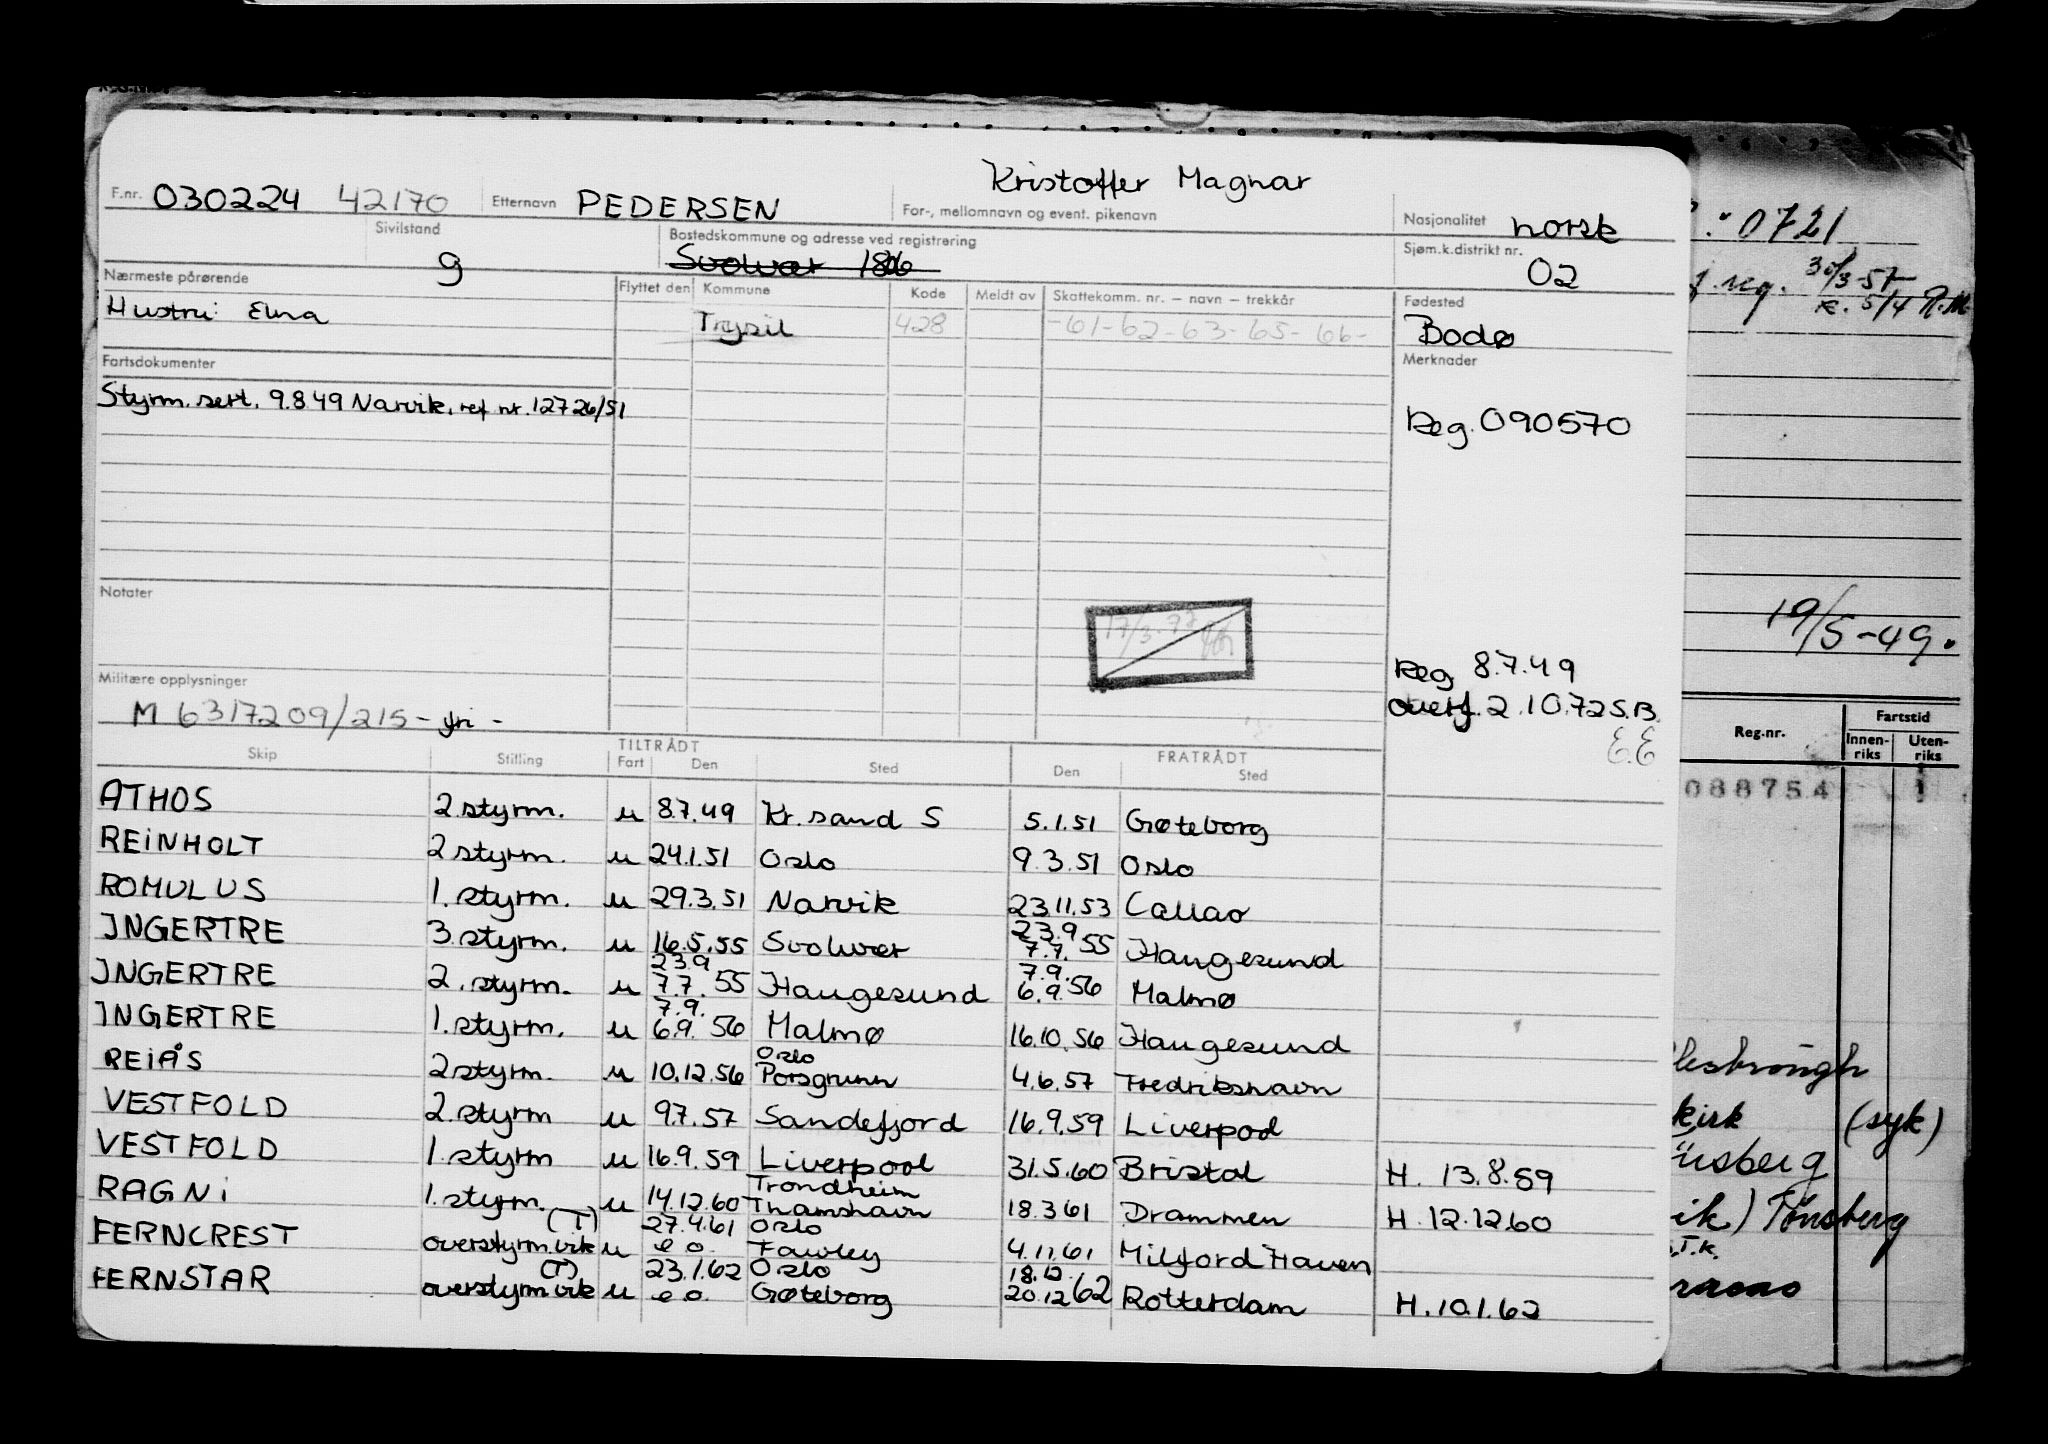 Kristoffer Magnar
F.nr. 030224 42170 Etternavn PEDERSEN For-, mellomnavn og event. pikenavn Nasjonalitet norsk
Sivilstand g Bostedskommune og adresse ved registrering Svolvær 1806 Sjøm.k.distrikt nr. 02
Nærmeste pårørende Flyttet den Kommune Kode Meldt av Skattekomm. nr. – navn – trekkår Fødested
Hustru: Elna Trysil 428 -61-62-63-65-66- Bodø
Fartsdokumenter Merknader
Styrm. sert. 9.8.49 Narvik, ref nr. 12726/51 Reg. 090570
Notater
17/3-77
Militære opplysninger Reg 8.7.49
M 6317209/215- fri - overf. 2.10.72 S.B.
E.E
TILTRÅDT FRATRÅDT
Skip Stilling Fart Den Sted Den Sted
ATHOS 2.styrm. u 8.7.49 Kr.sand S 5.1.51 Gøteborg
REINHOLT 2 styrm. u 24.1.51 Oslo 9.3.51 Oslo
ROMULUS 1. styrm. u 29.3.51 Narvik 23.11.53 Callao
INGERTRE 3.styrm. u 16.5.55 Svolvær 23.9 7.7. 55 Haugesund
INGERTRE 2. styrm. u 23.9 7.7. 55 Haugesund 7.9. 6.9. 56 Malmø
INGERTRE 1. styrm. u 7.9. 6.9. 56 Malmø 16.10.56 Haugesund
REIÅS 2 styrm. u 10.12.56 Oslo Porsgrunn 4.6.57 Fredrikshavn
VESTFOLD 2. styrm u 9.7.57 Sandefjord 16.9.59 Liverpool
VESTFOLD 1. styrm u 16.9.59 Liverpool 31.5.60 Bristol H. 13.8.59
RAGNI 1. styrm. u 14.12.60 Trondheim Thamshavn 18.3.61 Drammen H. 12.12.60
FERNCREST overstyrm.vik (T) u 27.4.61 e.o. Oslo Fawley 4.11.61 Milford Haven
FERNSTAR overstyrm vik (T) u 23.1.62 e.o. Oslo Gøteborg 18.12. 20.12 62 Rotterdam H. 10.1.62
: 0721
reg. 30/3-57
R. 5/4 R.M.
19/5-49.
Reg.nr. Fartstid
Innen-riks Uten-riks
088754 1
kirk (syk)
sberg
ik) Tønsberg
T.K.